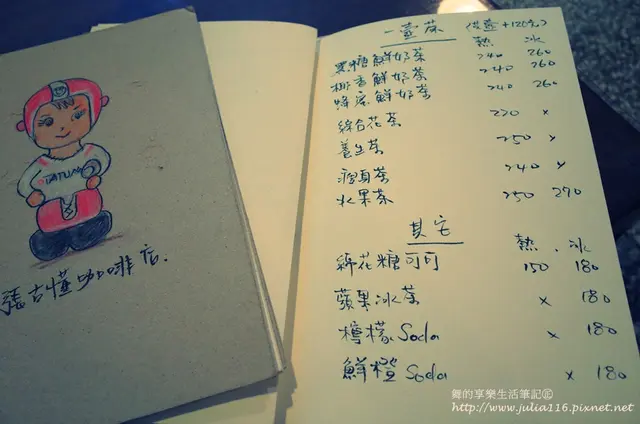 TATUNG
張古懂咖啡店.
一壺茶 (續壺+120元)
熱 冰
黑糖鮮奶茶 240 260
椰香鮮奶茶 240 260
蜂涼鮮奶茶 240 260
綜合花茶 220 x
養生茶 250 x
瘦身茶 240 x
水果茶 250 270
其它 熱. 冰
綿花糖可可 150 180
蘋果冰茶 x 180
檸檬Soda x 180
鮮橙Soda x 180
舞的享樂生活筆記
http://www.julia116.pixnet.net